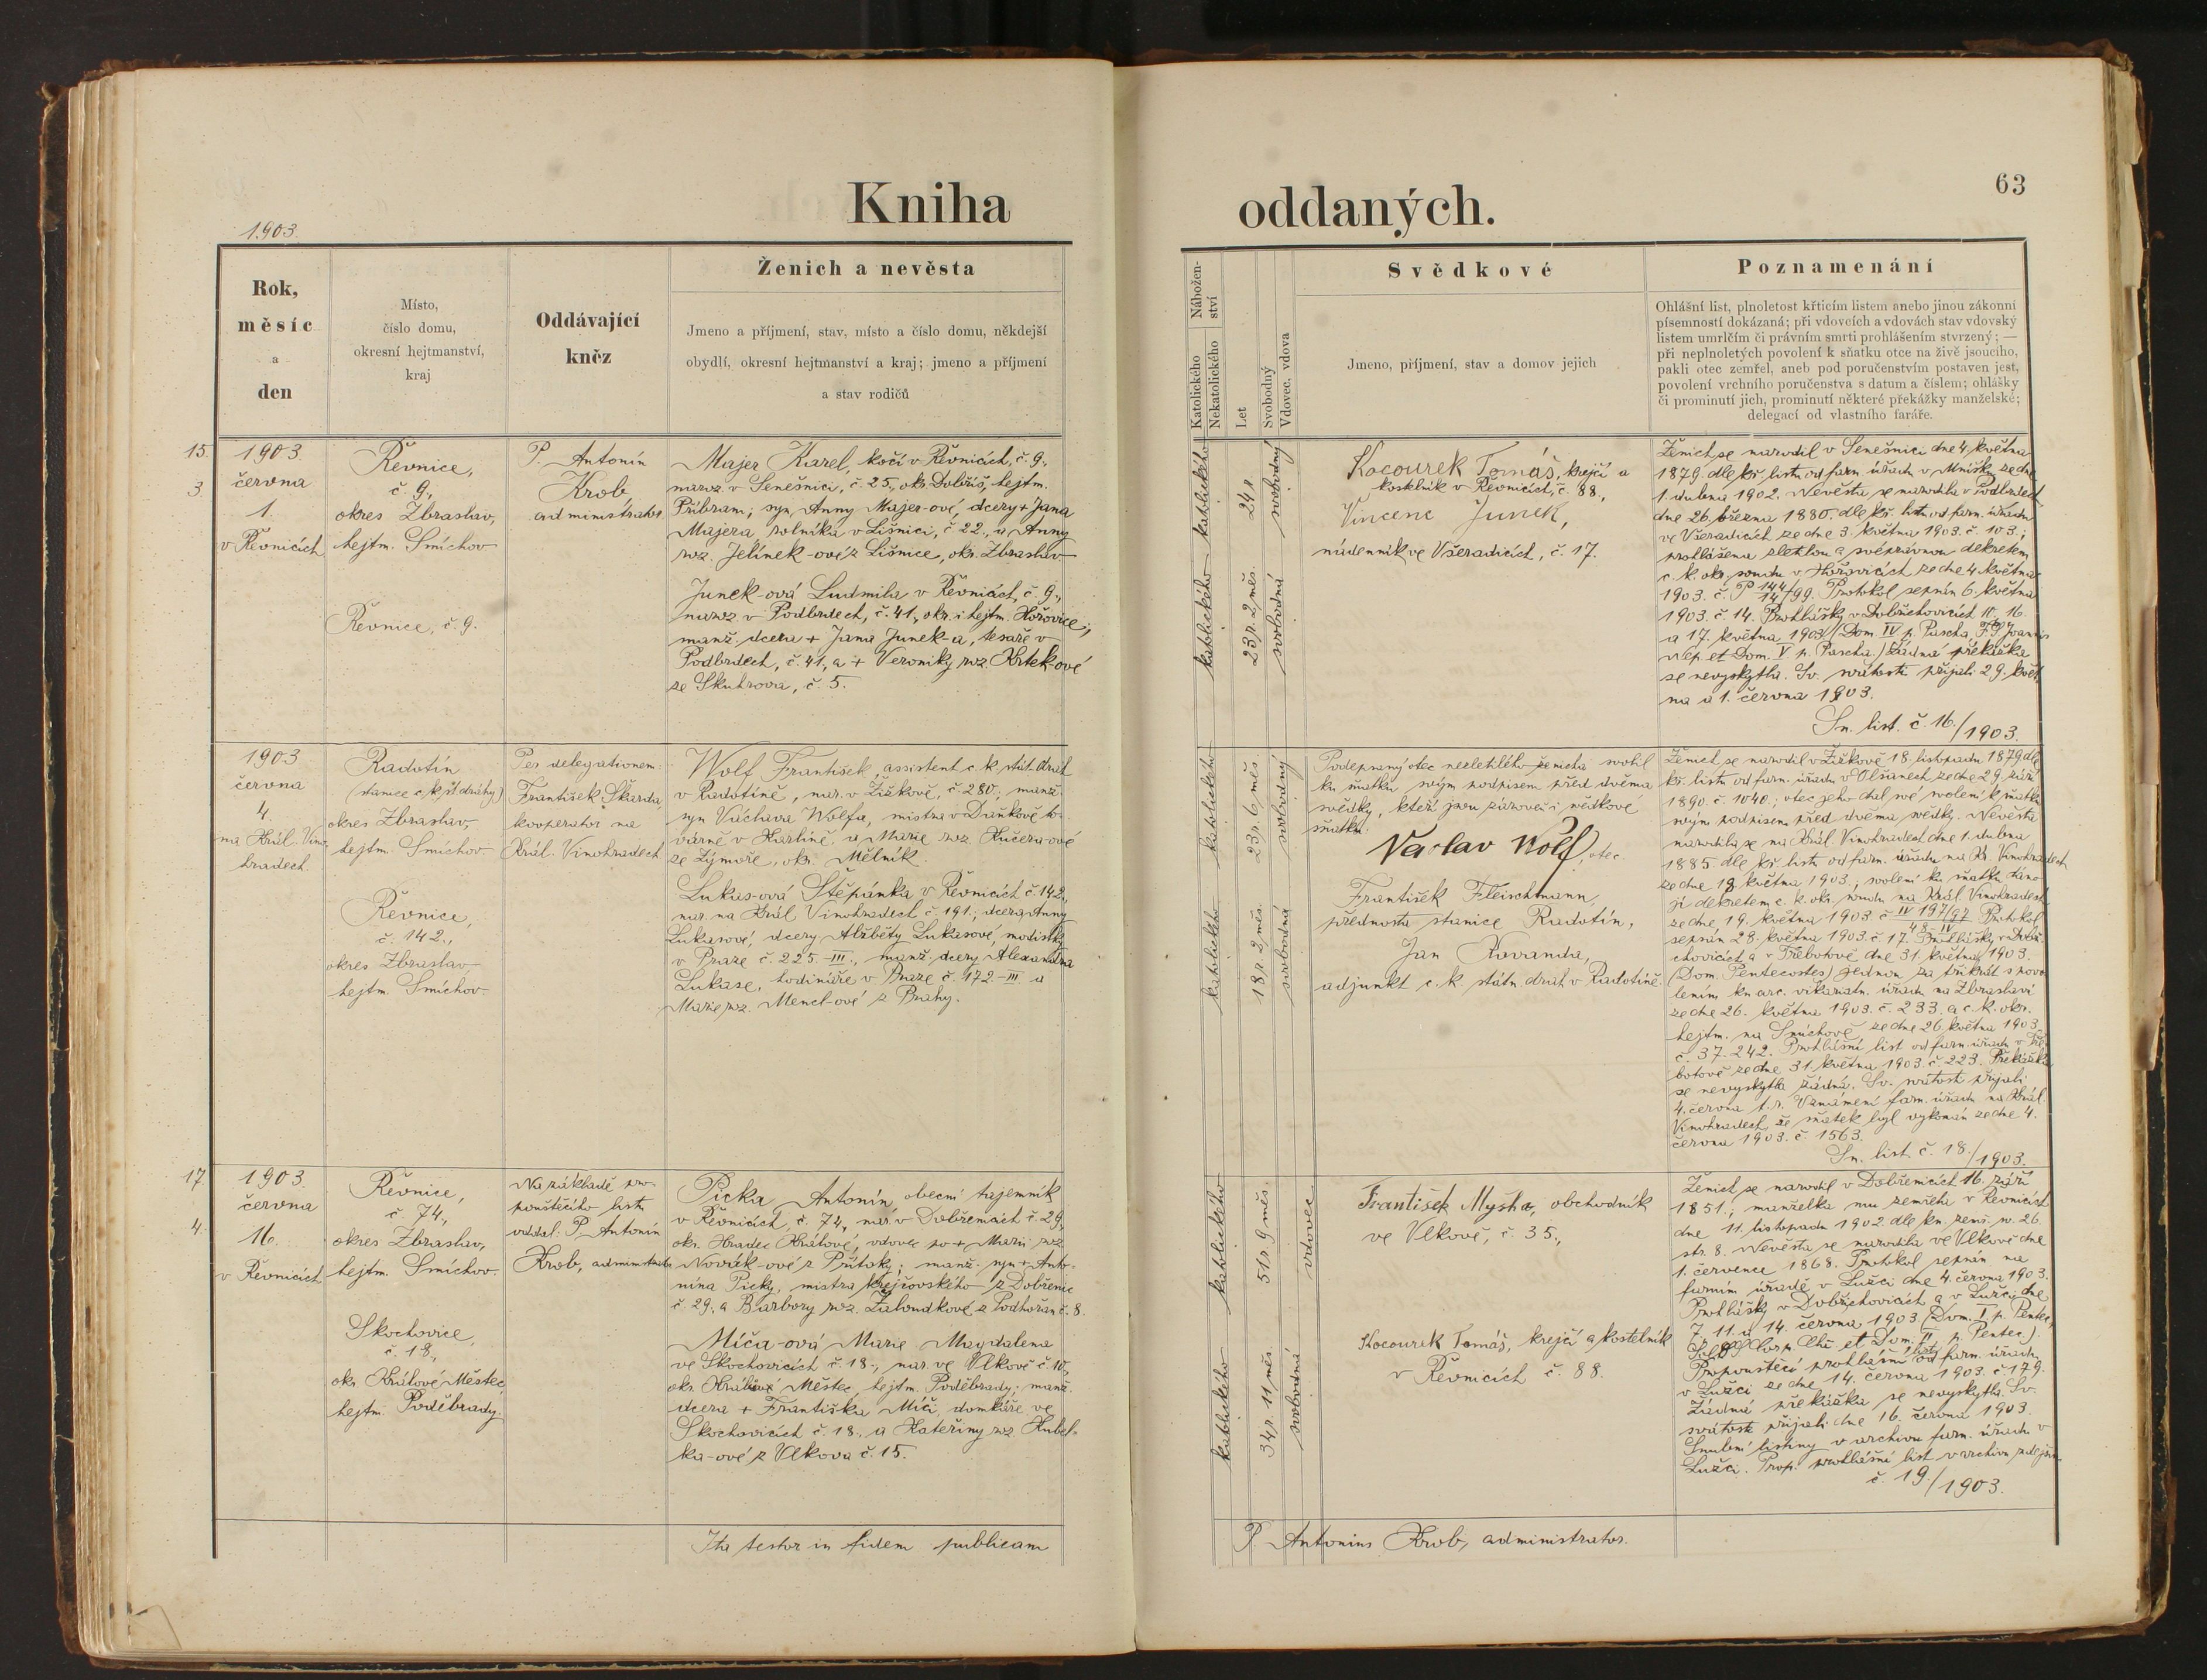 Kniha
oddaných.
63
1903.
Rok,
měsíc
a
den
Místo,
číslo domu,
okresní hejtmanství,
kraj
Oddávající
kněz
Ženich a nevěsta
Jmeno a příjmení, stav, místo a číslo domu, někdejší
obydlí, okresní hejtmanství a kraj; jmeno a příjmení
a stav rodičů
Nábožen-
ství
Katolického
Nekatolického
Let
Svobodný
Vdovec, vdova
Svědkové
Jmeno, příjmení, stav a domov jejich
Poznamenání
Ohlášní list, plnoletost křticím listem anebo jinou zákonní
písemností dokázaná; při vdovcích a vdovách stav vdovský
listem umrlčím či právním smrti prohlášením stvrzený; —
při neplnoletých povolení k sňatku otce na živě jsoucího,
pakli otec zemřel, aneb pod poručenstvím postaven jest,
povolení vrchního poručenstva s datum a číslem; ohlášky
či prominutí jich, prominutí některé překážky manželské;
delegací od vlastního faráře.
15.
3
1903.
června
1.
v Řevnicích
Řevnice,
č 9.,
okres Zbraslav,
hejtm. Smíchov
Řevnice, č. 9.
P. Antonín
Krob,
administrator
Majer Karel, kočí v Řevnicích, č. 9.,
naroz. v Senešnici, č. 25., okr. Dobříš, hejtm.
Příbram; syn Anny Majer-ové, dcery + Jana
Majera rolníka v Líšnici, č 22., a Anny
roz. Jelínek-ové z Líšnice, okr. Zbraslav
Junek-ová Ludmila v Řevnicích, č. 9.,
naroz. v Podbrdech, č. 41., okr. i hejtm. Hořovice;
manž. dcera + Jana Junek-a, tesaře v
Podbrdech, č. 41, a + Veroniky roz. Krtek-ové
ze Skuhrova, č. 5.
katolického
24 r.
svobodný
katolického
23 r. 2 měs.
svobodná
Kocourek Tomáš, krejčí a
kostelník v Řevnicích, č. 88.,
Vincenc Junek,
nádenník ve Všeradicích, č. 17.
Ženich se narodil v Senešnici dne 4. května
1879. dle kř. listu od farn. úřadu v Mníšku ze dne
1. dubna 1902. Nevěsta se narodila v Podbrdech
dne 26. března 1880. dle kř. listu od farn. úřadu
ve Všeradicích ze dne 3. května 1903. č. 103.;
prohlášena zletilou a svéprávnou dekretem
c. k. okr. soudu v Hořovicích ze dne 4. května
1903. č. P 144/14/99. Protokol sepsán 6. května
1903. č 14. Prohlášky v Dobřichovicích 10., 16.
a 17. května 1903 (Dom. IV p. Pascha, F. S Joannis
Nep. et Dom. V p. Pascha.) Žádná překážka
se nevyskytla. Sv. svátosti přijali 29. květ-
na a 1. června 1903.
Sn. list. č. 16./1903.
1903
června
4.
na Král. Vino-
hradech.
Radotín
(stanice c. k. st. dráhy)
okres Zbraslav,
hejtm. Smíchov
Řevnice,
č. 142.,
okres Zbraslav
hejtm. Smíchov.
Per delegationem:
František Škarda,
kooperator na
Král. Vinohradech
Wolf František, assistent c. k. stát. drah
v Radotíně, nar. v Žižkově, č. 280.; manž.
syn Václava Wolfa, mistra v Daňkově to-
várně v Karlíně, a Marie roz. Kučera-ové
ze Zýmoře, okr. Mělník.
Lukas-ová Štěpánka v Řevnicích č. 142.,
nar. na Král. Vinohradech č. 191.; dcera Anny
Lukasové, dcery Alžběty Lukasové, modistky
v Praze č. 225-III., manž. dcery Alexandra
Lukase, hodináře v Praze č. 172-III a
Marie roz. Mencl-ové z Prahy.
katolického
23 r. 6 měs.
svobodný
katolického
18 r. 2 měs.
svobodná
Podepsaný otec nezletilého ženicha svolil
ku sňatku svým podpisem před dvěma
svědky, kteří jsou zároveň i svědkové
sňatku.
Vaclav Wolf, otec.
František Fleischmann,
přednosta stanice Radotín,
Jan Rovanda,
adjunkt c. k. státn. drah v Radotíně.
Ženich se narodil v Žižkově 18. listopadu 1879 dle
kř. listu od farn. úřadu v Olšanech ze dne 29. září
1890. č. 1040.; otec jeho dal své svolení k sňatku
svým podpisem před dvěma svědky. Nevěsta
narodila se na Král. Vinohradech dne 1. dubna
1885 dle kř. listu od farn. úřadu na Kr. Vinohradech
ze dne 18. května 1903.; svolení ku sňatku dáno
jí dekretem c. k. okr. soudu na Král. Vinohradech
ze dne 19. května 1903 č. IV 197/97 Protokol
sepsán 28. května 1903. č. 17. Prohlášky v Dobř-
chovicích a v Třebotově dne 31. května 1903.
(Dom. Pentecostes) jednou za třikrát s povo-
lením kn. arc. vikariatn. úřadu na Zbraslavi
ze dne 26. května 1903. č. 233. a c. k. okr.
hejtm. na Smíchově ze dne 26. května 1903
č. 37.242. Prohlášní list od farn. úřadu v Tře-
botově ze dne 31. května 1903 č. 223. Překážka
se nevyskytla žádná. Sv. svátosti přijali
4. června t. r. Oznámení farn. úřadu na Král.
Vinohradech, že sňatek byl vykonán ze dne 4.
června 1903. č. 1563.
Sn. list č. 18./1903.
17
4.
1903.
června
16.
v Řevnicích
Řevnice,
č 74.,
okres Zbraslav,
hejtm. Smíchov.
Skochovice,
č. 18.,
okr. Králové Městec
hejtm. Poděbrady
Na základě pro-
pouštěcího listu
oddal: P. Antonín
Krob, administrator
Picka Antonín, obecní tajemník
v Řevnicích, č. 74., nar. v Dobřenicích č. 29.,
okr. Hradec Králové, vdovec po + Marii roz.
Novák-ové z Přítoky; manž. syn + Anto-
nína Picky, mistra krejčovského z Dobřenic
č. 29. a Barbory roz. Žaloudkové z Podhořan č. 8.
Míča-ová Marie Magdalena
ve Skochovicích č. 18.; nar. ve Vlkově č. 10.,
okr. Králové Městec, hejtm. Poděbrady; manž.
dcera + Františka Míči, domkáře ve
Skochovicích č. 18., a Kateřiny roz. Kubel-
ka-ové z Vlkova č. 15.
katolického
51 r. 9 měs.
vdovec
katolického
34 r. 11 měs.
svobodná
František Myška, obchodník
ve Vlkově, č. 35.,
Kocourek Tomáš, krejčí a kostelník
v Řevnicích č. 88.
Ženich se narodil v Dobřenicích 16. září
1851.; manželka mu zemřela v Řevnicích
dne 11. listopadu 1902. dle kn. zemř. sv. 26.
str. 8. Nevěsta se narodila ve Vlkově dne
1. července 1868. Protokol sepsán na
farním úřadě v Lužci dne 4. června 1903.
Prohlášky v Dobřichovicích a v Lužci dne
7. 11. a 14. června 1903. (Dom. I p. Pentec.,
Corp. Chr. et Dom. II p. Pentec.).
Propouštěcí prohlášní list od farn. úřadu
v Lužci ze dne 14. června 1903. č. 179.
Žádná překážka se nevyskytla. Sv.
svátosti přijali dne 16. června 1903.
Snubní listiny v archivu farn. úřadu v
Lužci. Prop. prohlášní list v archivu zdejším
č. 19./1903.
Ita testor in fidem publicam
P. Antonius Krob, administrator.